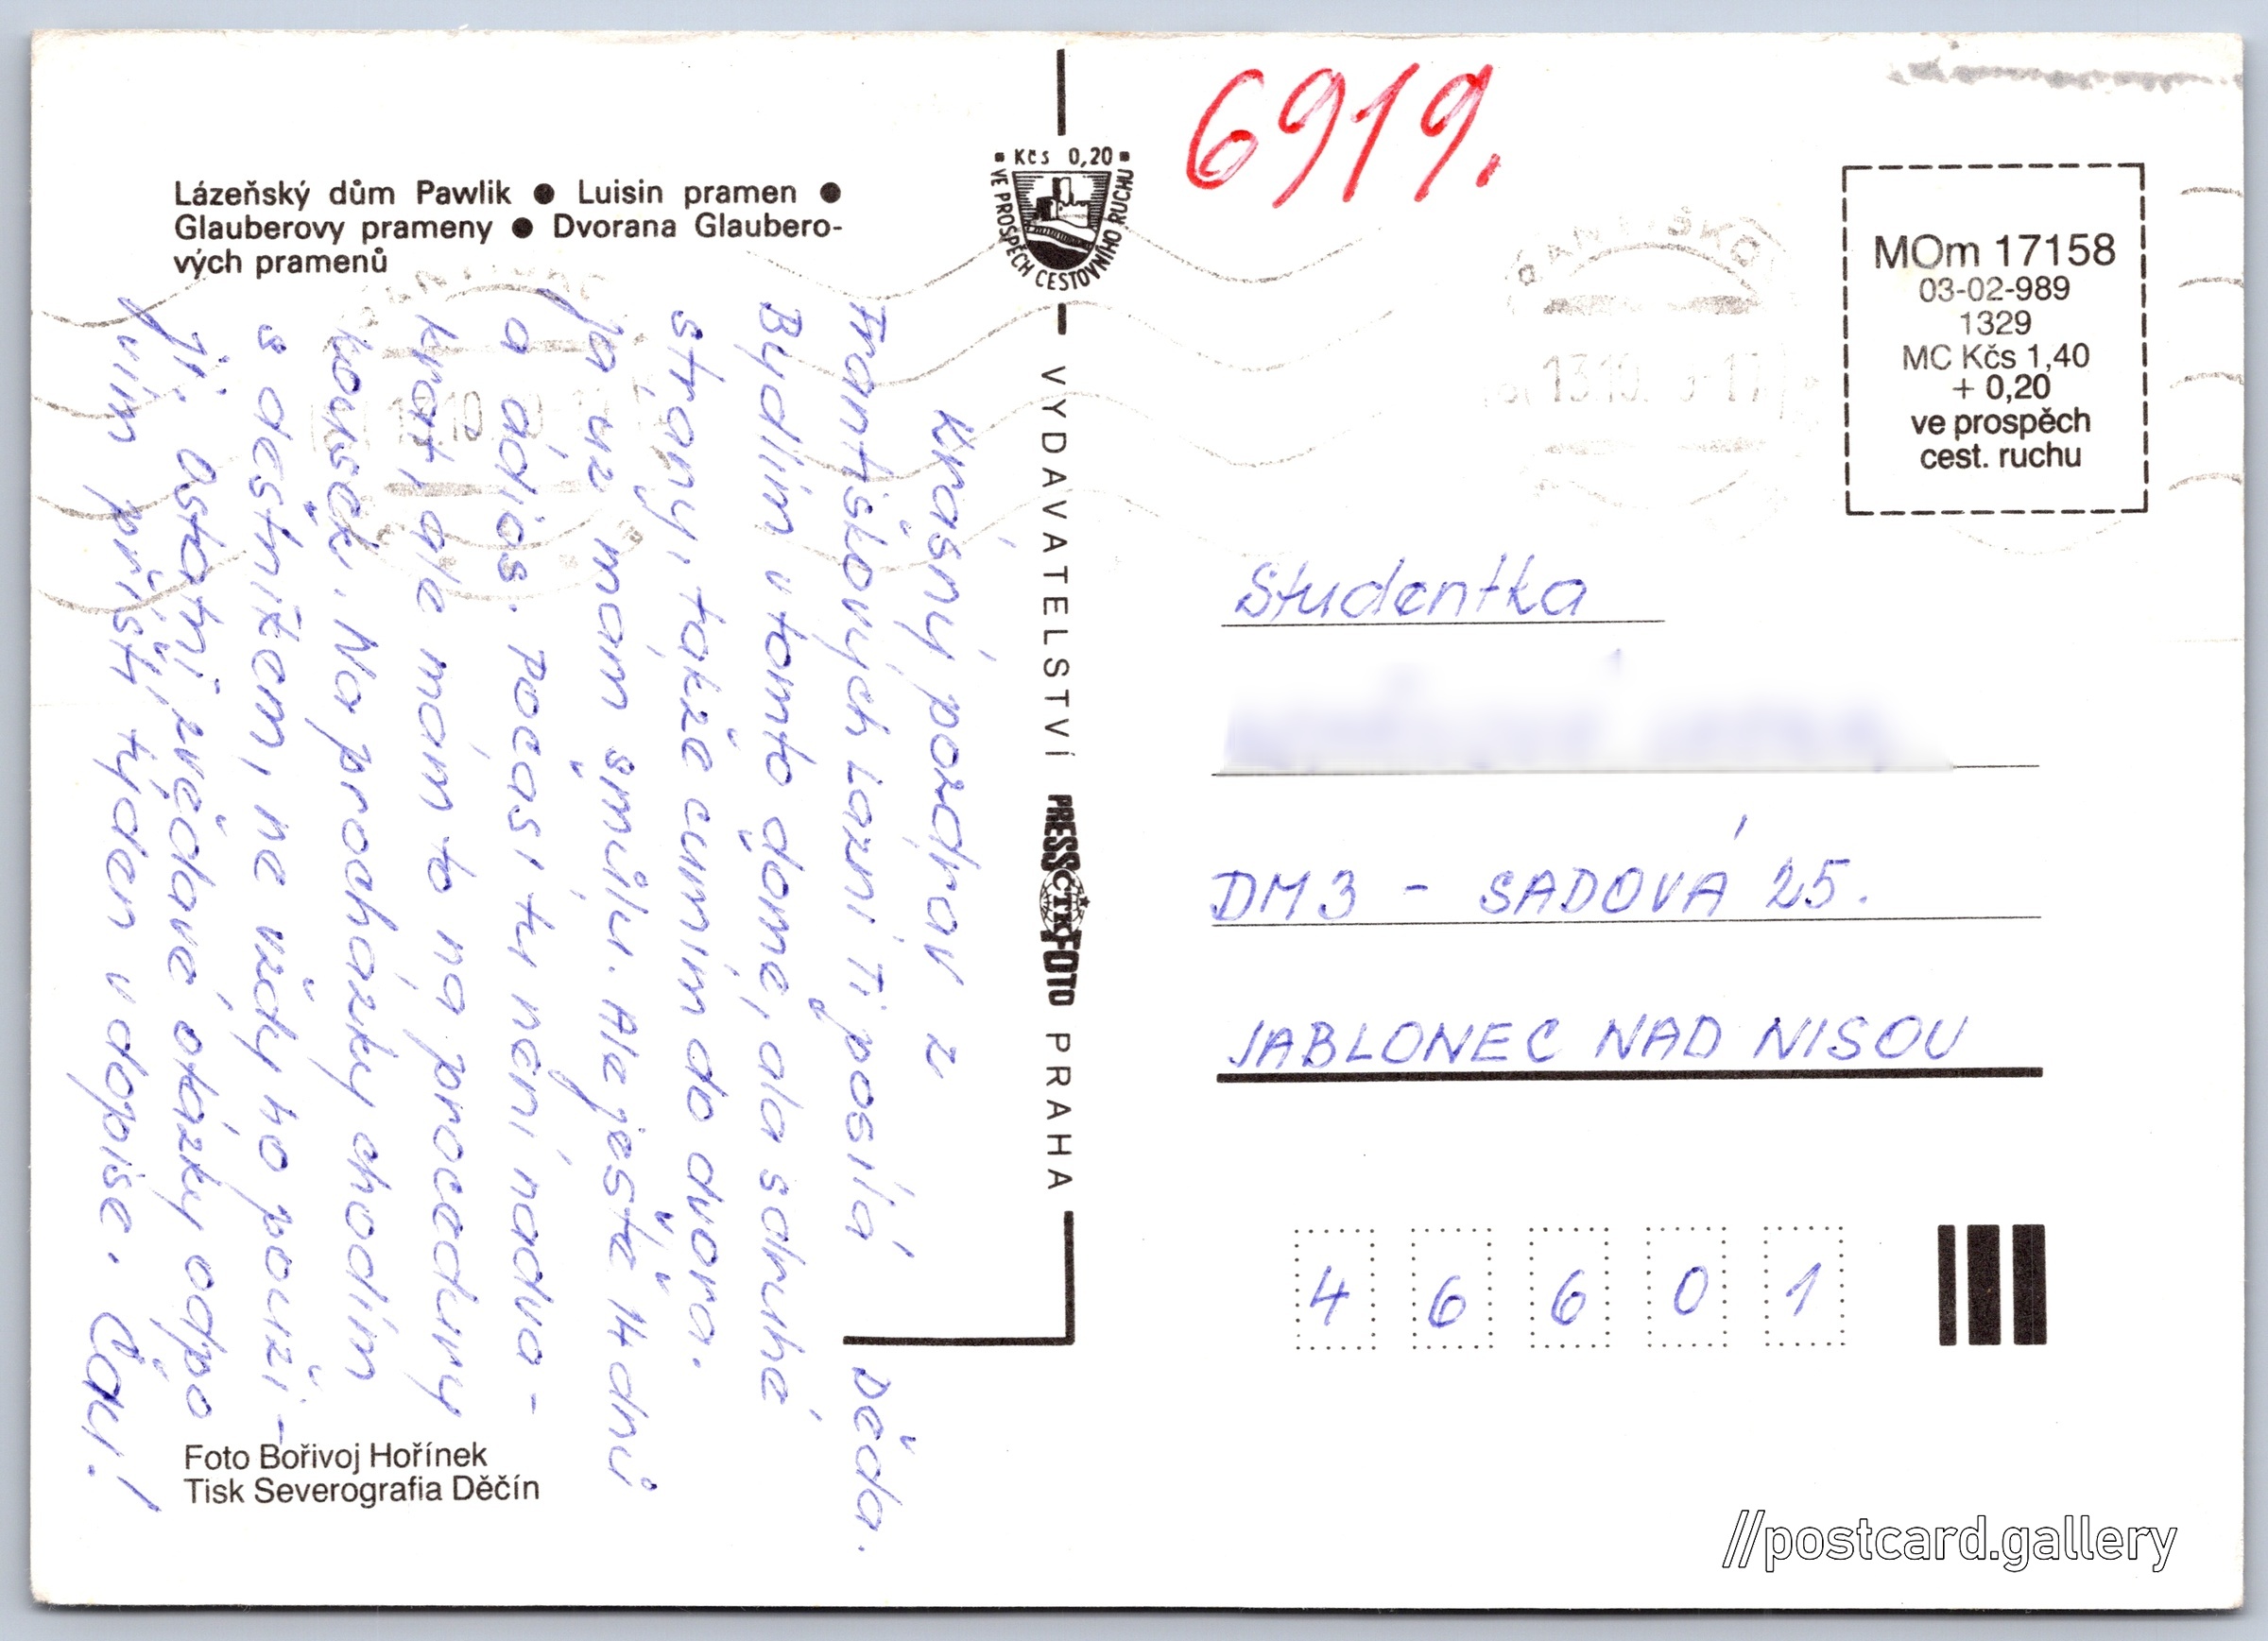 Lázeňský dům Pawlik ● Luisin pramen ●
Glauberovy prameny ● Dvorana Glaubero-
vých pramenů
Krásný pozdrav z
Františkových Lázní Ti posílá Děda.
Bydlím v tomto domě, ala s druhé
strany, takže čumím do dvora.
Já už mám šmůlu. Ale ještě 14 dní
a ádios. Počasí tu není nadva-
krát, ale mám to na procedury
kousek. Na procházky chodím
s deštníkem, ne vždy ho použi-
ji. Ostatní zvědavé otázky odpo
vím příští týden v dopise. Čau!
Foto Bořivoj Hořínek
Tisk Severografia Děčín
Kčs 0,20
VE PROSPĚCH CESTOVNÍHO RUCHU
VYDAVATELSTVÍ PRESSFOTO PRAHA
ČTK
6919.
13.10. 17
MOm 17158
03-02-989
1329
MC Kčs 1,40
+ 0,20
ve prospěch
cest. ruchu
Studentka
DM3 - SADOVÁ 25.
JABLONEC NAD NISOU
4 6 6 0 1
//postcard.gallery